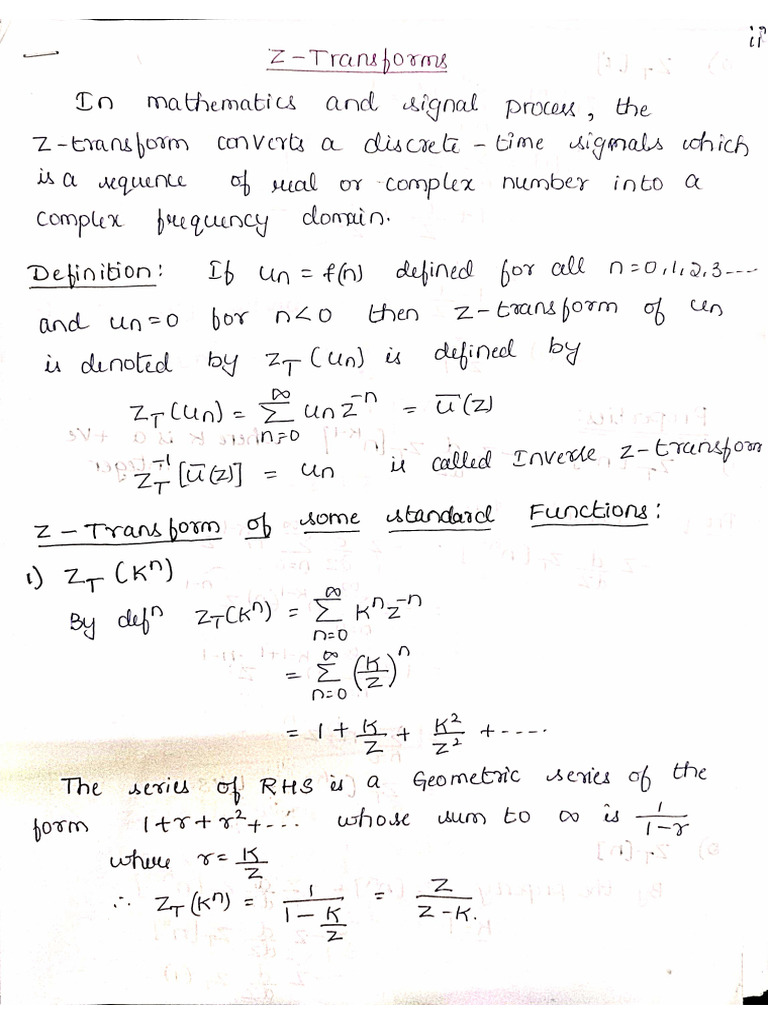 Z-Transforms
In mathematics and signal process, the
Z-transform converts a discrete-time signals which
is a sequence of real or complex number into a
complex frequency domain.
Definition: If un = f(n) defined for all n=0,1,2,3----
and un=0 for n<0 then Z-transform of un
is denoted by Z_T(un) is defined by
Z_T(un) = ∑_{n=0}^{∞} un z^{-n} = ū(z)
Z_T^{-1}[ū(z)] = un is called Inverse Z-transform
Z-Transform of some standard Functions:
1) Z_T(K^n)
By def^n Z_T(K^n) = ∑_{n=0}^{∞} K^n z^{-n}
= ∑_{n=0}^{∞} (K/Z)^n
= 1 + K/Z + K^2/Z^2 + -----
The series of RHS is a Geometric series of the
form 1+r+r^2+--- whose sum to ∞ is 1/(1-r)
where r = K/Z
∴ Z_T(K^n) = 1/(1 - K/Z) = Z/(Z-K).